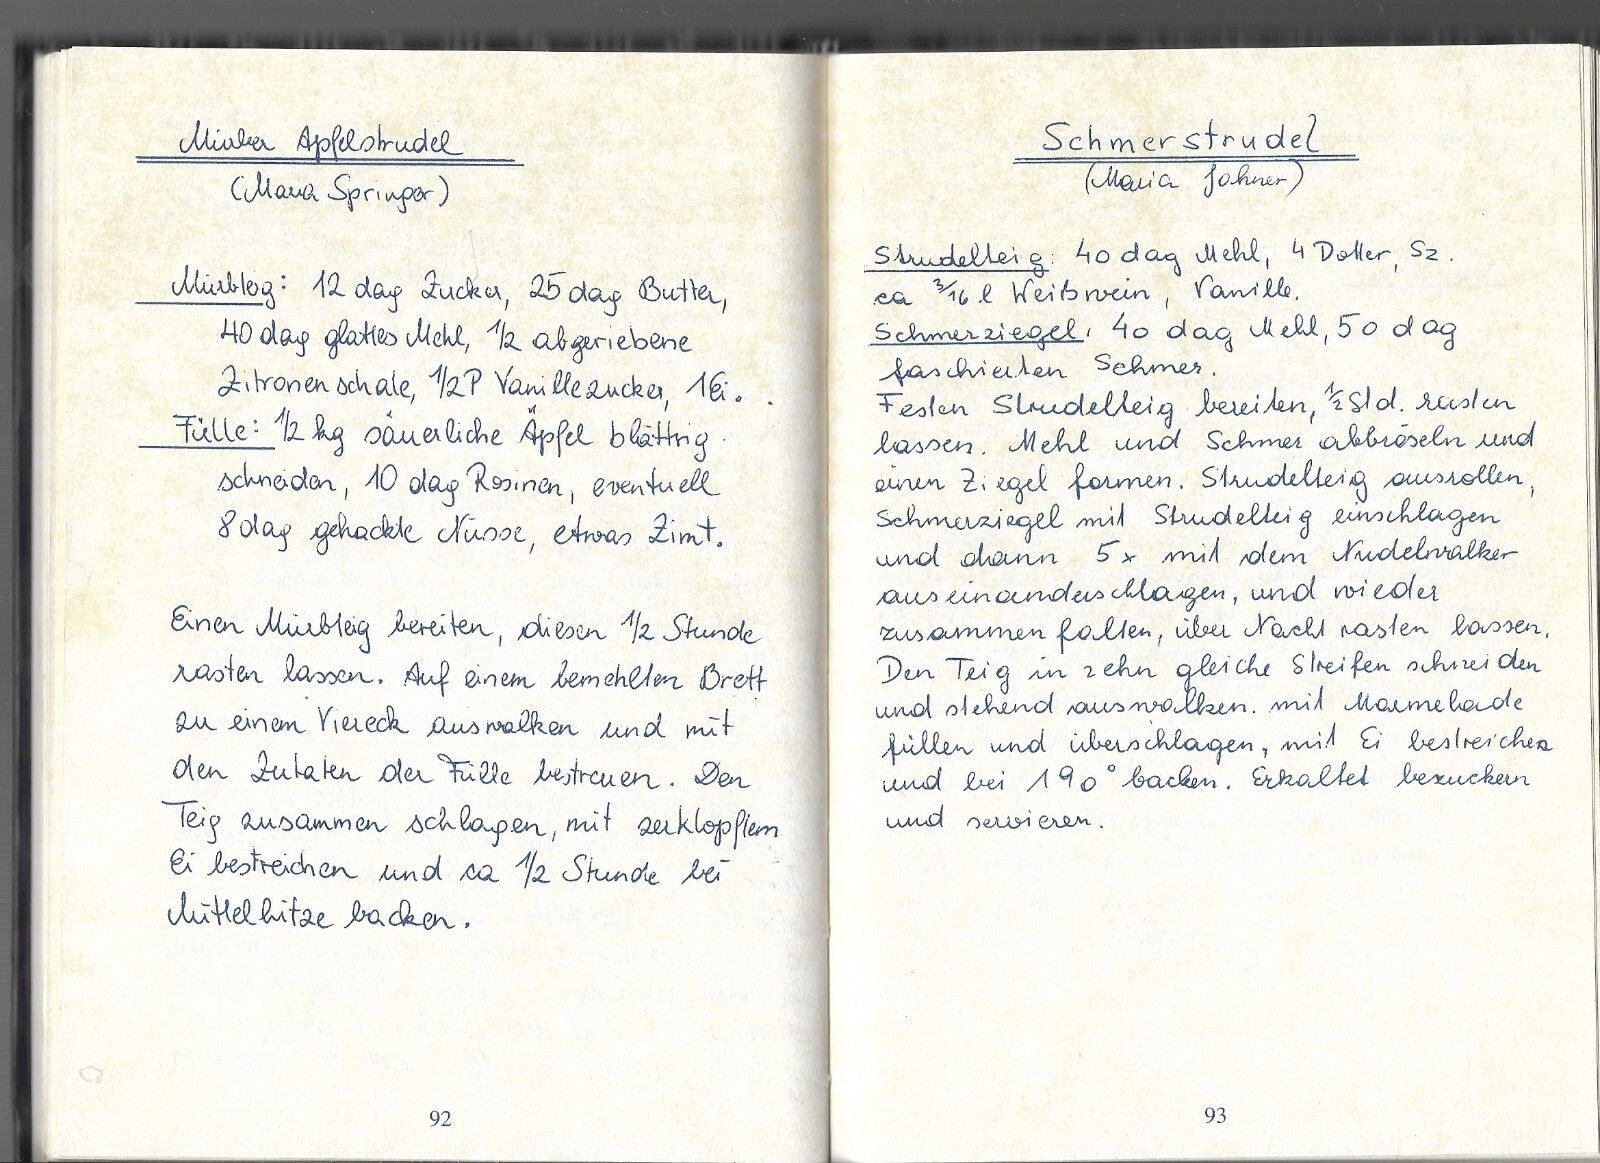 Mürber Apfelstrudel
(Maria Springer)
Mürbteig: 12 dag Zucker, 25 dag Butter,
40 dag glattes Mehl, 1/2 abgeriebene
Zitronenschale, 1/2 P Vanillezucker, 1 Ei.
Fülle: 1/2 kg säuerliche Äpfel blättrig
schneiden, 10 dag Rosinen, eventuell
8 dag gehackte Nüsse, etwas Zimt.
Einen Mürbteig bereiten, diesen 1/2 Stunde
rasten lassen. Auf einem bemehlten Brett
zu einem Viereck auswalken und mit
den Zutaten der Fülle bestreuen. Den
Teig zusammen schlagen, mit zerklopftem
Ei bestreichen und ca 1/2 Stunde bei
Mittelhitze backen.
92
Schmerstrudel
(Maria Johner)
Strudelteig: 40 dag Mehl, 4 Dotter, Sz.
ca 3/16 l Weißwein, Vanille.
Schmerziegel: 40 dag Mehl, 50 dag
faschierten Schmer.
Festen Strudelteig bereiten, 1/2 Std. rasten
lassen. Mehl und Schmer abbröseln und
einen Ziegel formen. Strudelteig ausrollen,
Schmerziegel mit Strudelteig einschlagen
und dann 5x mit dem Nudelwalker
auseinanderschlagen, und wieder
zusammenfalten, über Nacht rasten lassen.
Den Teig in zehn gleiche Streifen schneiden
und stehend auswalken. mit Marmelade
füllen und überschlagen, mit Ei bestreichen
und bei 190° backen. Erkaltet bezuckern
und servieren.
93